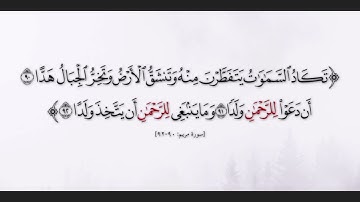 ﴿تَكَادُ ٱلسَّمَٰوَٰتُ يَتَفَطَّرۡنَ مِنۡهُ وَتَنشَقُّ ٱلۡأَرۡضُ وَتَخِرُّ ٱلۡجِبَالُ هَدًّا ٩٠
أَن دَعَوۡاْ لِلرَّحۡمَٰنِ وَلَدٗا ٩١ وَمَا يَنۢبَغِي لِلرَّحۡمَٰنِ أَن يَتَّخِذَ وَلَدًا ٩٢﴾
[سورة مريم: ٩٠-٩٢]